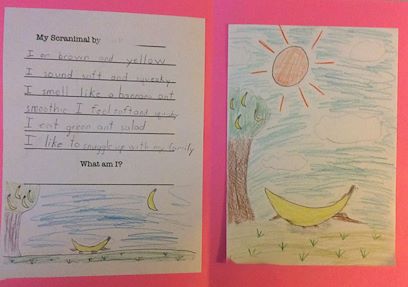 My Scranimal by
I am brown and yellow
I sound soft and squeaky
I smell like a banana ant
smoothie I feel soft and squishy
I eat green ant salad
I like to snuggle up with my family
What am I?